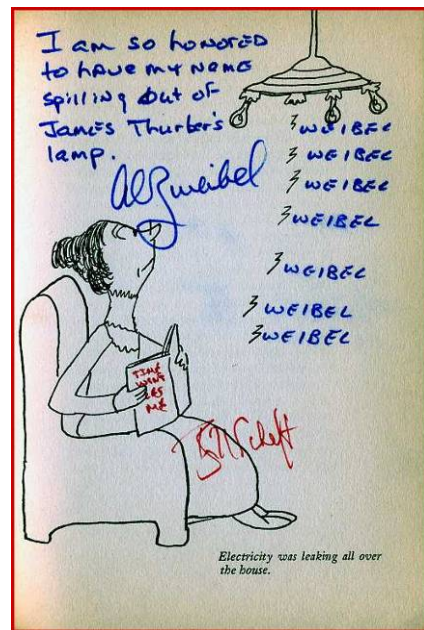 I am so honored
to have my name
spilling out of
James Thurber's
lamp.
Al Zweibel
ZWEIBEL
ZWEIBEL
ZWEIBEL
ZWEIBEL
ZWEIBEL
ZWEIBEL
ZWEIBEL
TIME
WONT
LET
ME
Bill Scheft
Electricity was leaking all over
the house.